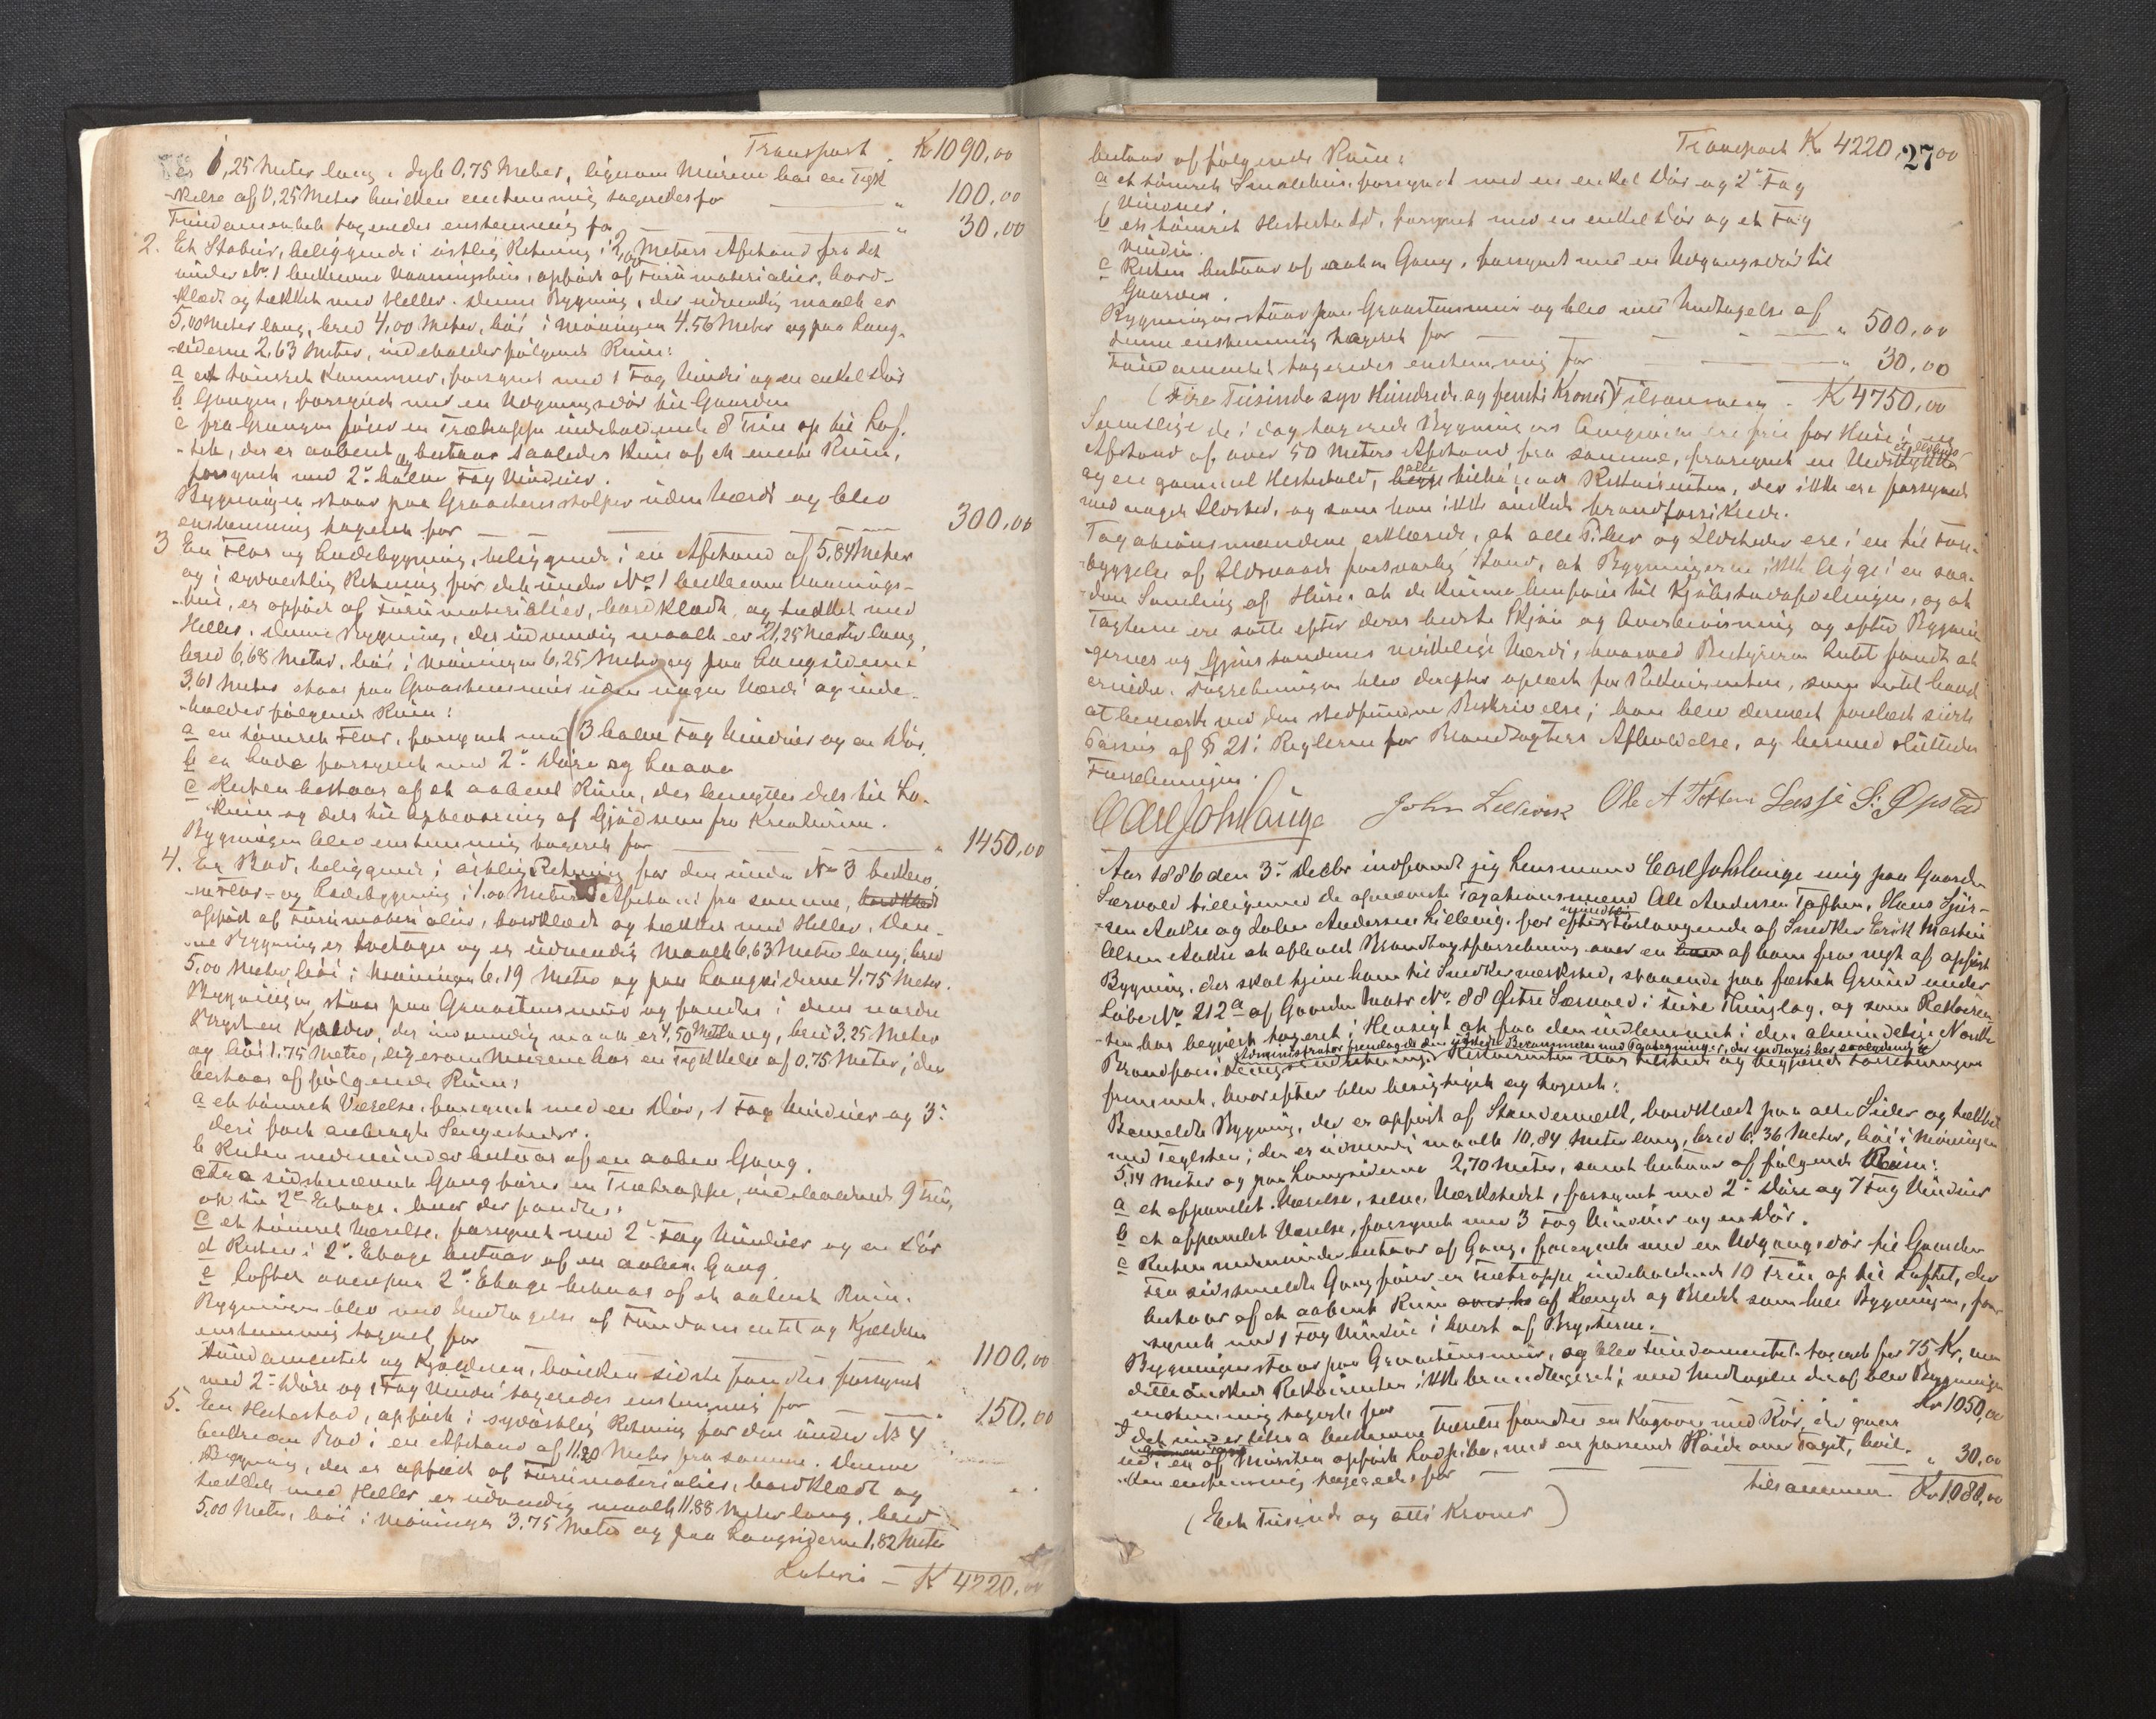 Transport . Kr 1090,00
er 6,25 Meter lang, dyb 0,75 Meter, ligesom Muren har en Tyk-
kelse af 0,25 Meter hvilken enstemmig taxeredes for " 100,00
Fundamentet taxeredes enstemmig for " 30,00
2. Et Stabur, beliggende i østlig Retning i 2,00 Meters Afstand fra det
under No 1 bemeldte Vaaningshus, opført af Furumaterialier, bord-
klædt og tækket med Heller. Denne Bygning, der udvendig maalt er
5,00 Meter lang, bred 4,00 Meter, høi i Møningen 4.56 Meter og paa Lang-
siderne 2,63 Meter, indeholder følgende Rum:
a et tømret Kammer, forsynet med 1 Fag Vindu og en enkel Dør
b Gangen, forsynet med en Udgangsdør til Gaarden
c fra Gangen fører en Trætrappe indeholdende 8 Trin op til Lof-
tet, der er aabent og bestaar saaledes kun af et eneste Rum,
forsynet med 2de halve Fag Vinduer.
Bygningen staar paa Graastensstolper uden Værdi og blev
enstemmig taxeret for 300,00
3 En Flor og Ladebygning, beliggende i en Afstand af 5,84 Meter
og i sydvestlig Retning for det under No 1 bemeldte Vaanings-
hus, er opført af Furumaterialier, bordklædt og tækket med
Heller. Denne Bygning, der udvendig maalt er 21,25 Meter lang,
bred 6,68 Meter, høi i Møningen 6,25 Meter og paa Langsiderne
3,61 Meter staar paa Graastensmur uden nogen Værdi og inde-
holder følgende Rum:
a en tømret Flor, forsynet med 3 halve Fag Vinduer og en Dør,
b en Lade forsynet med 2de Døre og Laave
c Resten bestaar af et aabent Rum, der benyttes dels til Lø-
Rum og dels til Opbevaring af Gjødselen fra Kreaturene.
Bygningen blev enstemmig taxeret for " 1450,00
4. En Bod, beliggende i østlig Retning for den under No 3 bemeld-
te Flor- og Ladebygning i 1.00 Meters Afstand fra samme, bordklædt
opført af Furumaterialier, bordklædt og tækket med Heller. Den-
ne Bygning er toetages og er udvendig maalt 6,63 Meter lang, bred
5,00 Meter, høi i Møningen 6,19 Meter og paa Langsiderne 4,75 Meter.
Bygningen staar paa Graastensmur og fandtes i dens nordre
Bryst en Kjælder, der indvendig maalt er 4,50 Met lang, bred 3,25 Meter
og høi 1,75 Meter, ligesom Murene har en Tykkelse af 0.75 Meter, den
bestaar af følgende Rum:
a et tømret Værelse, forsynet med en Dør, 1 Fag Vinduer og 3de
deri fast anbragte Sengesteder.
b Resten nedenunder bestaar af en aaben Gang.
Fra sidstnævnte Gang fører en Trætrappe, indeholdende 9 Trin,
op til 2den Etage, hvor der fandtes:
c et tømret Værelse, forsynet med 2de Fag Vinduer og en Dør
d Resten i 2den Etage bestaar af en aaben Gang.
e Loftet ovenpaa 2den Etage bestaar af et aabent Rum.
Bygningen blev med Undtagelse af Fundamentet og Kjælderen
enstemmig taxeret for " 1100,00
Fundamentet og Kjælderen, hvilken sidste fandtes forsynet
med 2de Døre og 1 Fag Vindu taxeredes enstemmig for " 150,00
5. En Hestestad, opført i sydøstlig Retning for den under No 4
bemeldte Bod i en Afstand af 11.20 Meter fra samme. Denne
Bygning, der er opført af Furumaterialier, bordklædt og
tækket med Heller er udvendig maalt 11.88 Meter lang, bred
5,00 Meter, høi i Møningen 3,75 Meter og paa Langsiderne 1,82 Meter
Lateris – Kr 4220,00
Transport Kr 4220,00
27
bestaar af følgende Rum:
a et tømret Smalehus, forsynet med en enkel Dør og 2de Fag
Vinduer.
b en tømret Hestestald, forsynet med en enkel Dør og et Fag
Vindu.
c Resten bestaar af aaben Gang, forsynet med en Udgangsdør til
Gaarden.
Bygningen staar paa Graastensmur og blev med Undtagelse af
denne enstemmig taxeret for " 500,00
Fundamentet taxeredes enstemmig for " 30,00
(Fire Tusinde syv Hundrede og femti Kroner) Tilsammen – Kr 4750,00
Samtlige de i dag taxerede Bygningers Omgivelser ere frie for Huse i en
Afstand af over 50 Meters Afstand fra samme, forsynet en
og en gammel Hestestald, begge alle tilhørende Rekvirenten, der ikke ere forsynet
med noget Ildsted, og som han ikke ønskede brandforsikrede.
Taxationsmændene erklærede, at alle Piber og Ildsteder ere i en til Fore-
byggelse af Ildsvaade forsvarlig Stand, at Bygningerne ikke ligge i en saa-
dan Samling af Huse at de kunne henføres til Kjøbstadafdelingen, og at
Taxterne ere satte efter deres bedste Skjøn og Overbevisning og efter Bygnin-
gernes og Gjenstandenes virkelige Værdi, hvorved Bestyreren Intet fandt at
erindre. Forretningen blev derefter oplæst for Rekvirenten, som Intet havde
at bemærke ved den stedfundne Beskrivelse; han blev dernæst forelæst sidste
Passus af § 21 i Reglerne for Brandtaxters Afholdelse, og hermed sluttedes
Forretningen.
Carl Joh Lange John Ole A Toften Lasse S. Opstad
Aar 1886 den 3de Decbr indfandt jeg Lensmand Carl Joh Lange mig paa Gaarden
Særvold tilligemed de opnævnte Taxationsmænd Ole Andersen Toften, Hans Sjur-
sen Aakre og John Andersen Lilleeng, for efter mundtlig Forlangende af Snedker Erik Martin
Olsen Aakre at afholde Brandtaxtforretning over en ham af ham fra nyt af opført
Bygning, der skal tjene ham til Snedkerværksted, staaende paa fæstet Grund under
Løbe No 212a af Gaarden Matr No 88 Østre Særvold i Thinglag, og som Rekviren-
ten har begjært taxeret i Hensigt at faa den indlemmet i den almindelige Norske
Brandforsikrings Indretning. Rekvirenten var tilstede og begjærede Forretningen
Administrator fremlagde den udstedte Berammelse med Paategninger, der indtages her saalydende
fremmet, hvorefter blev besigtiget og taxeret:
Bemeldte Bygning, der er opført af Standerværk, bordklædt paa alle Sider og tækket
med Teglsten; den er udvendig maalt 10,84 Meter lang, bred 6,36 Meter, høi i Møningen
5,14 Meter og paa Langsiderne 2,70 Meter, samt bestaar af følgende Rum:
a et oppanelet Værelse, selve Værkstedet, forsynet med 2de Døre og 7 Fag Vinduer
b et oppanelet Værelse, forsynet med 3 Fag Vinduer og en Dør.
c Resten nedenunder bestaar af Gang, forsynet med en Udgangsdør til Gaarden
Fra sidstmeldte Gang fører en Trætrappe indeholdende 10 Trin op til Loftet, der
bestaar af et aabent Rum af Længde og Bredde som hele Bygningen, for-
synet med 1 Fag Vindue i hvert af Brysterne.
Bygningen staar paa Graastensmur, og blev Fundamentet taxeret for 75 Kr, men
dette ønskede Rekvirenten ikke brandtaxeret; med Undtagelse deraf blev Bygningen
enstemmig taxeret for Kr 1050,00
I det under Litra a bemeldte Værelse fandtes en Kogeovn med Rør, der gaar
ud i en af Mursten opført Ladpibe, med en passende Høide over Taget, hvil-
ken enstemmig taxeredes for " 30,00
tilsammen Kr 1080,00
(Eet Tusinde og otti Kroner)